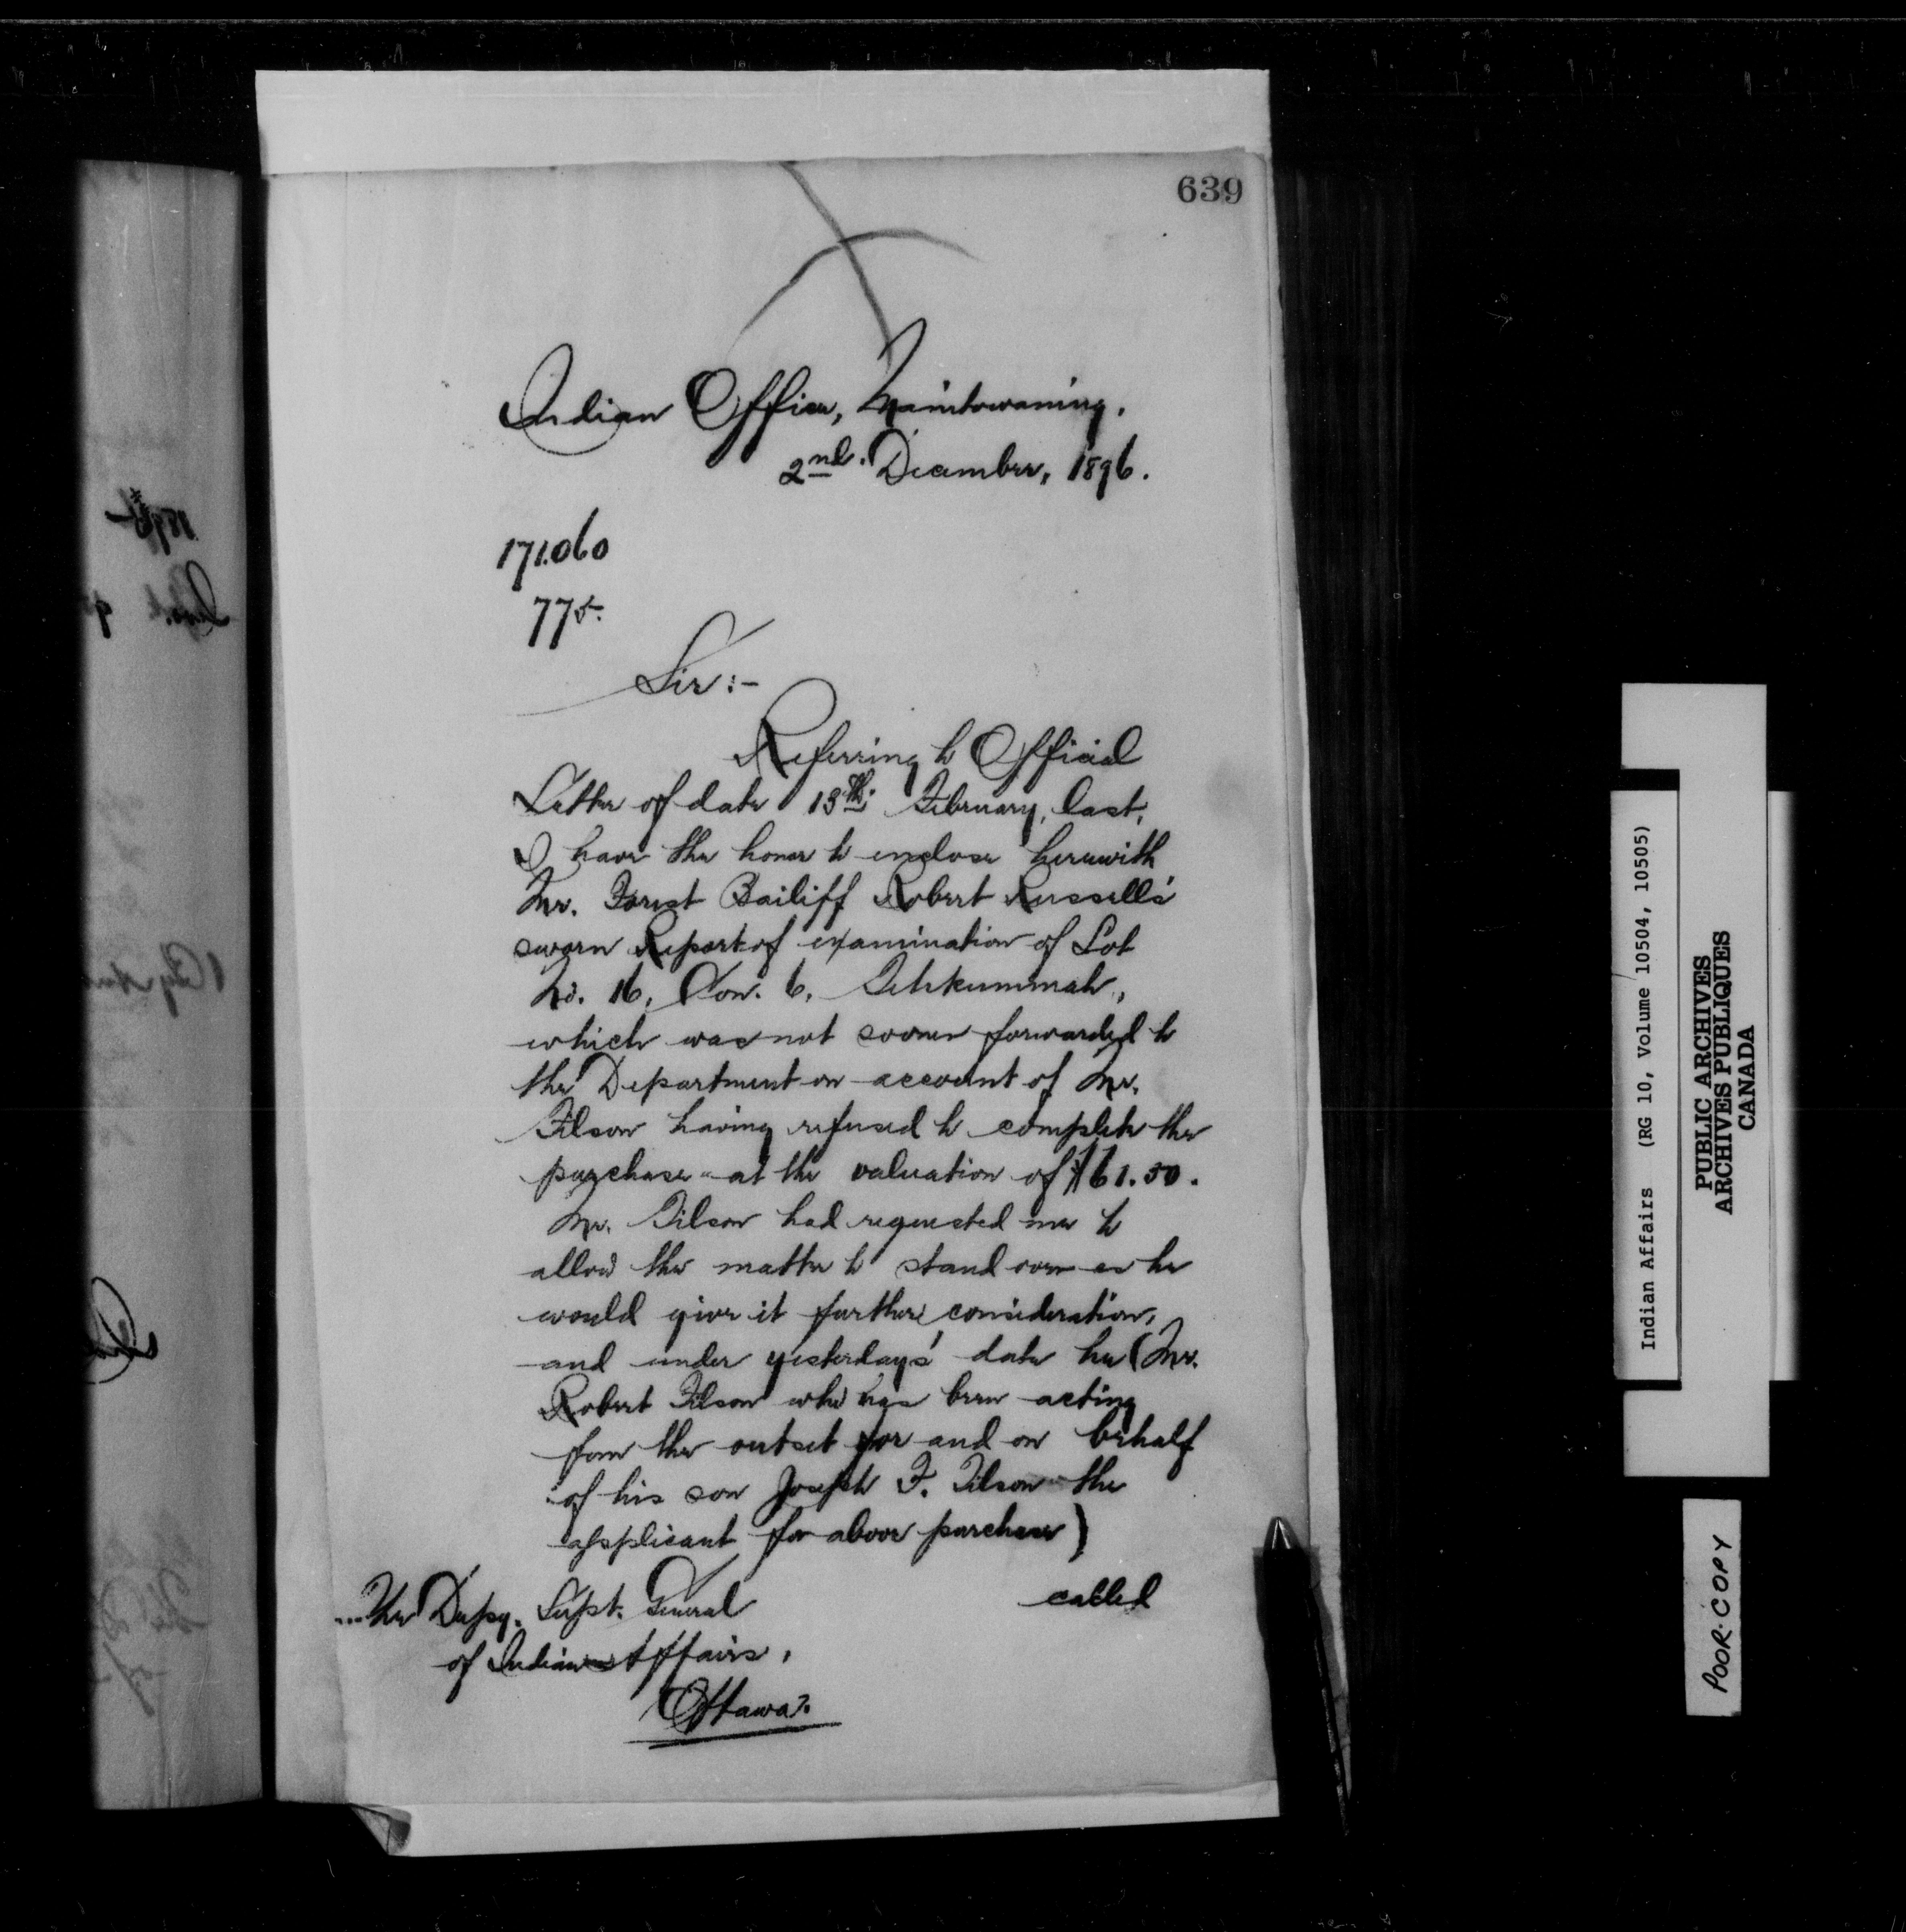 639
Indian Office, Manitowaning,
2nd. December, 1896.
171.060
775.
Sir:-
Referring to Official
Letter of date 13th. February, last,
I have the honor to enclose herewith
Mr. Forest Bailiff Robert Russell's
sworn Report of examination of Lot
No. 16, Con. 6, Tehkummah,
which was not sooner forwarded to
the Department on account of Mr.
Tilson having refused to complete the
purchase at the valuation of $61.50.
Mr. Tilson had requested me to
allow the matter to stand over as he
would give it further consideration,
and under yesterday's date he (Mr.
Robert Tilson who has been acting
from the outset for and on behalf
of his son Joseph F. Tilson the
applicant for above purchase)
called
The Depy. Supt. General
of Indian Affairs,
Ottawa.
Indian Affairs (RG 10, Volume 10504, 10505)
PUBLIC ARCHIVES
ARCHIVES PUBLIQUES
CANADA
POOR COPY